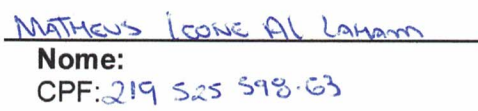 MATHEUS ICONE Al LAHAM
Nome:
CPF: 219 525 598.63